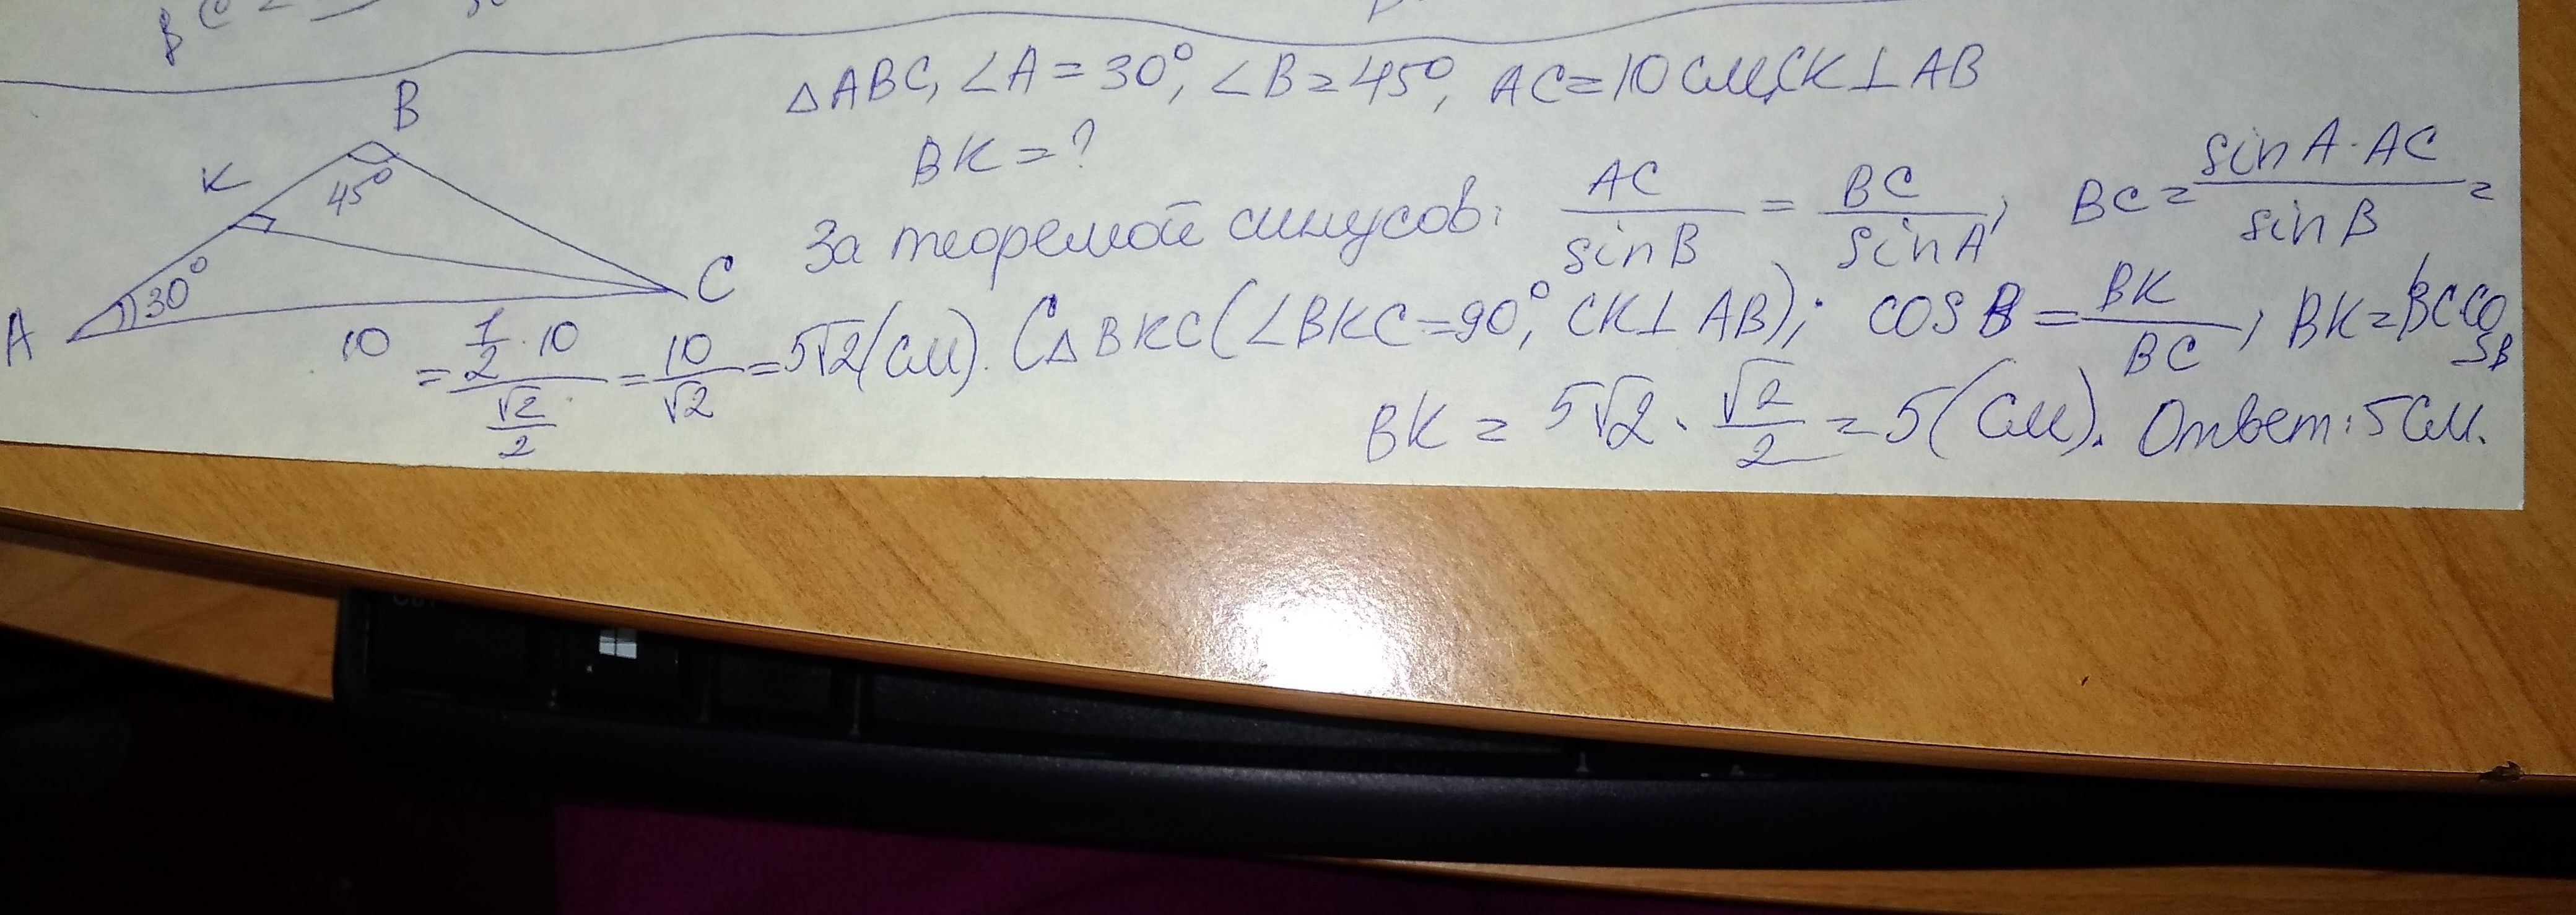 △ABC, ∠A = 30°, ∠B = 45°, AC = 10 см, CK ⊥ AB
BK = ?
B
K
45°
30°
A
C
10
За теоремой синусов: AC/sin B = BC/sin A; BC = (sin A · AC)/sin B =
= (1/2 · 10)/(√2/2) = 10/√2 = 5√2 (см). С △BKC (∠BKC = 90°, CK ⊥ AB); cos B = BK/BC; BK = BC cos B
BK = 5√2 · √2/2 = 5 (см). Ответ: 5 см.